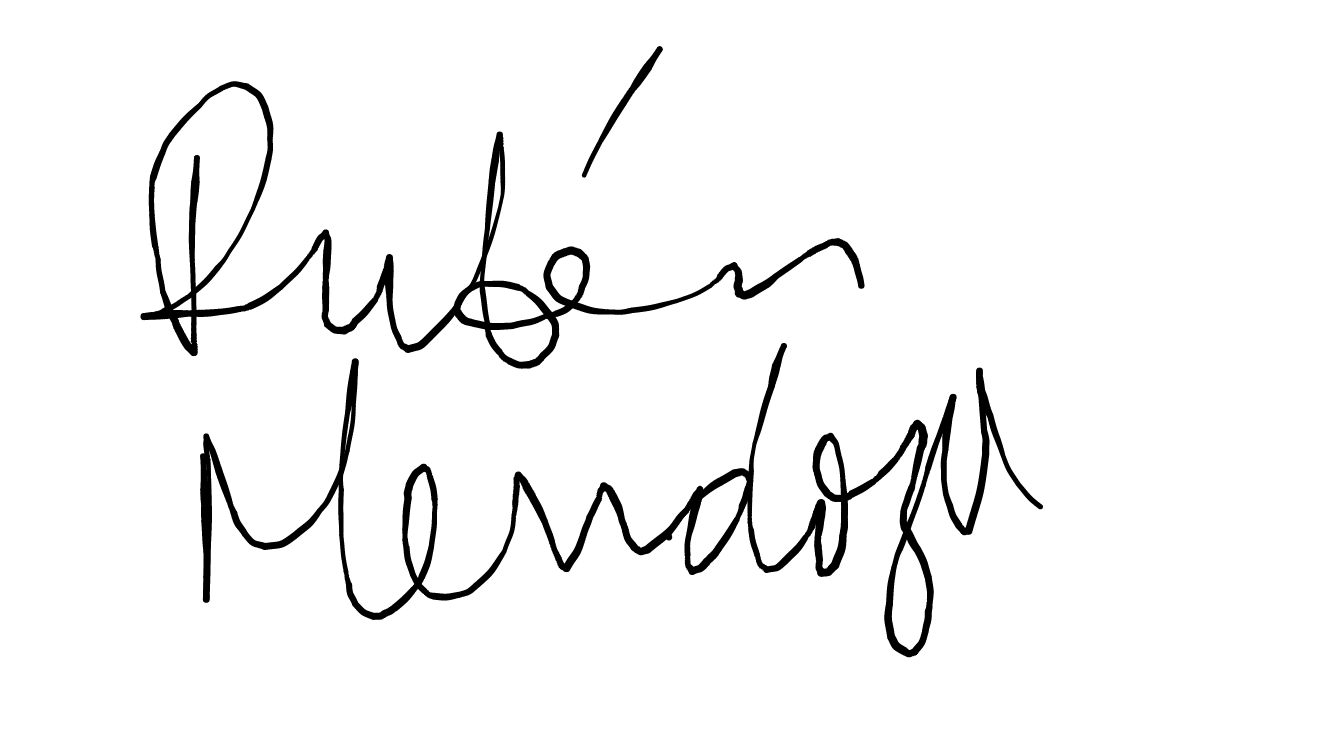 Rubén
Mendoza